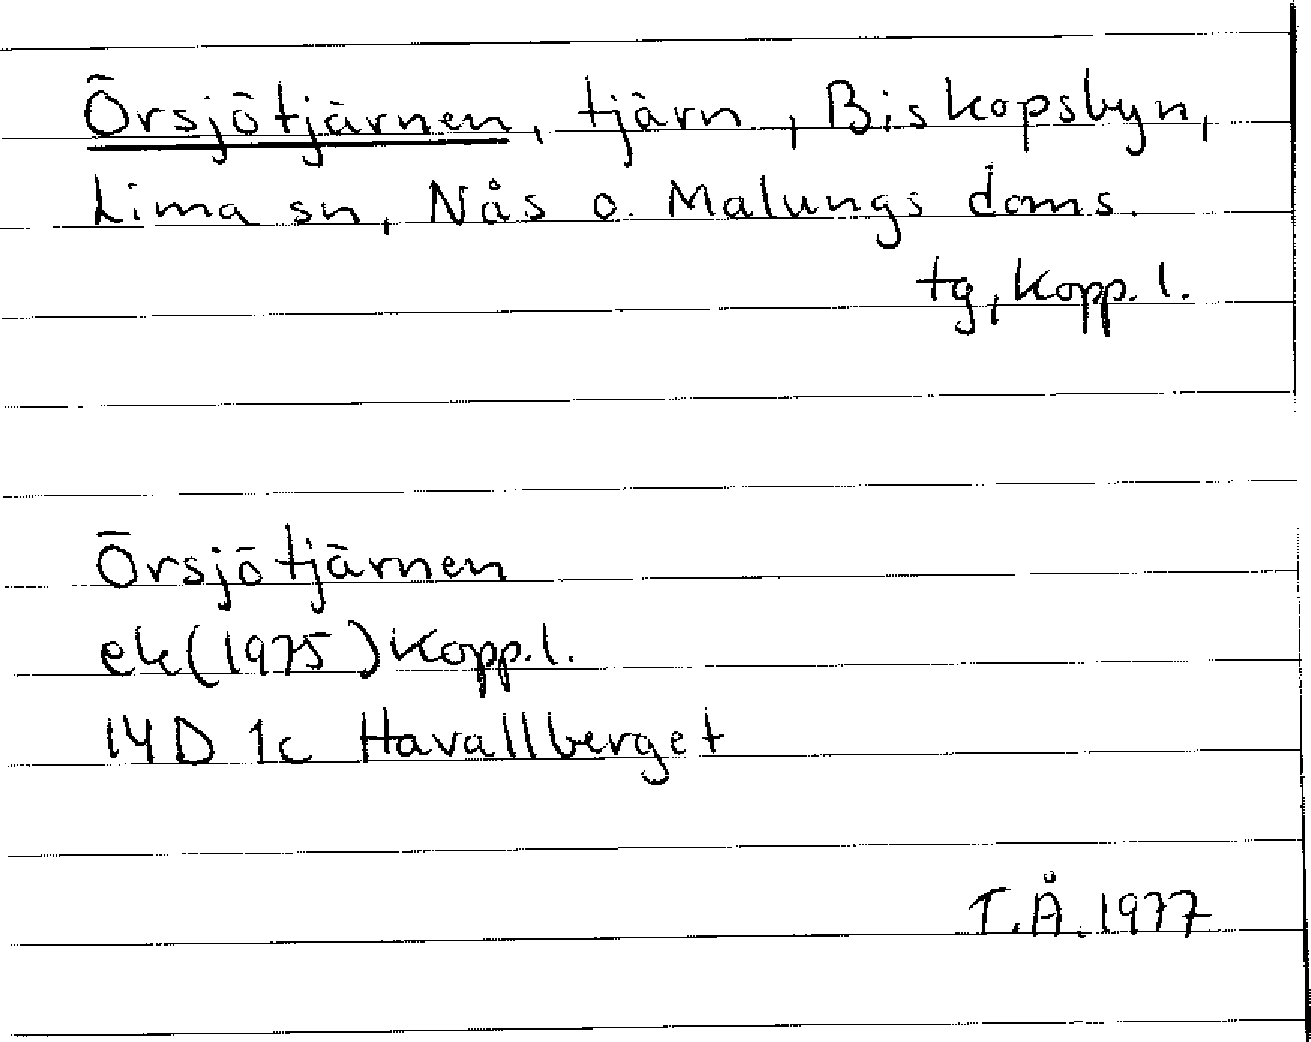 Örsjötjärnen, tjärn, Biskopsbyn,
Lima sn, Nås o. Malungs doms.
tg, Kopp. l.
Örsjötjärnen
ek (1975) Kopp. l.
14D 1c Havallberget
T.Å. 1977